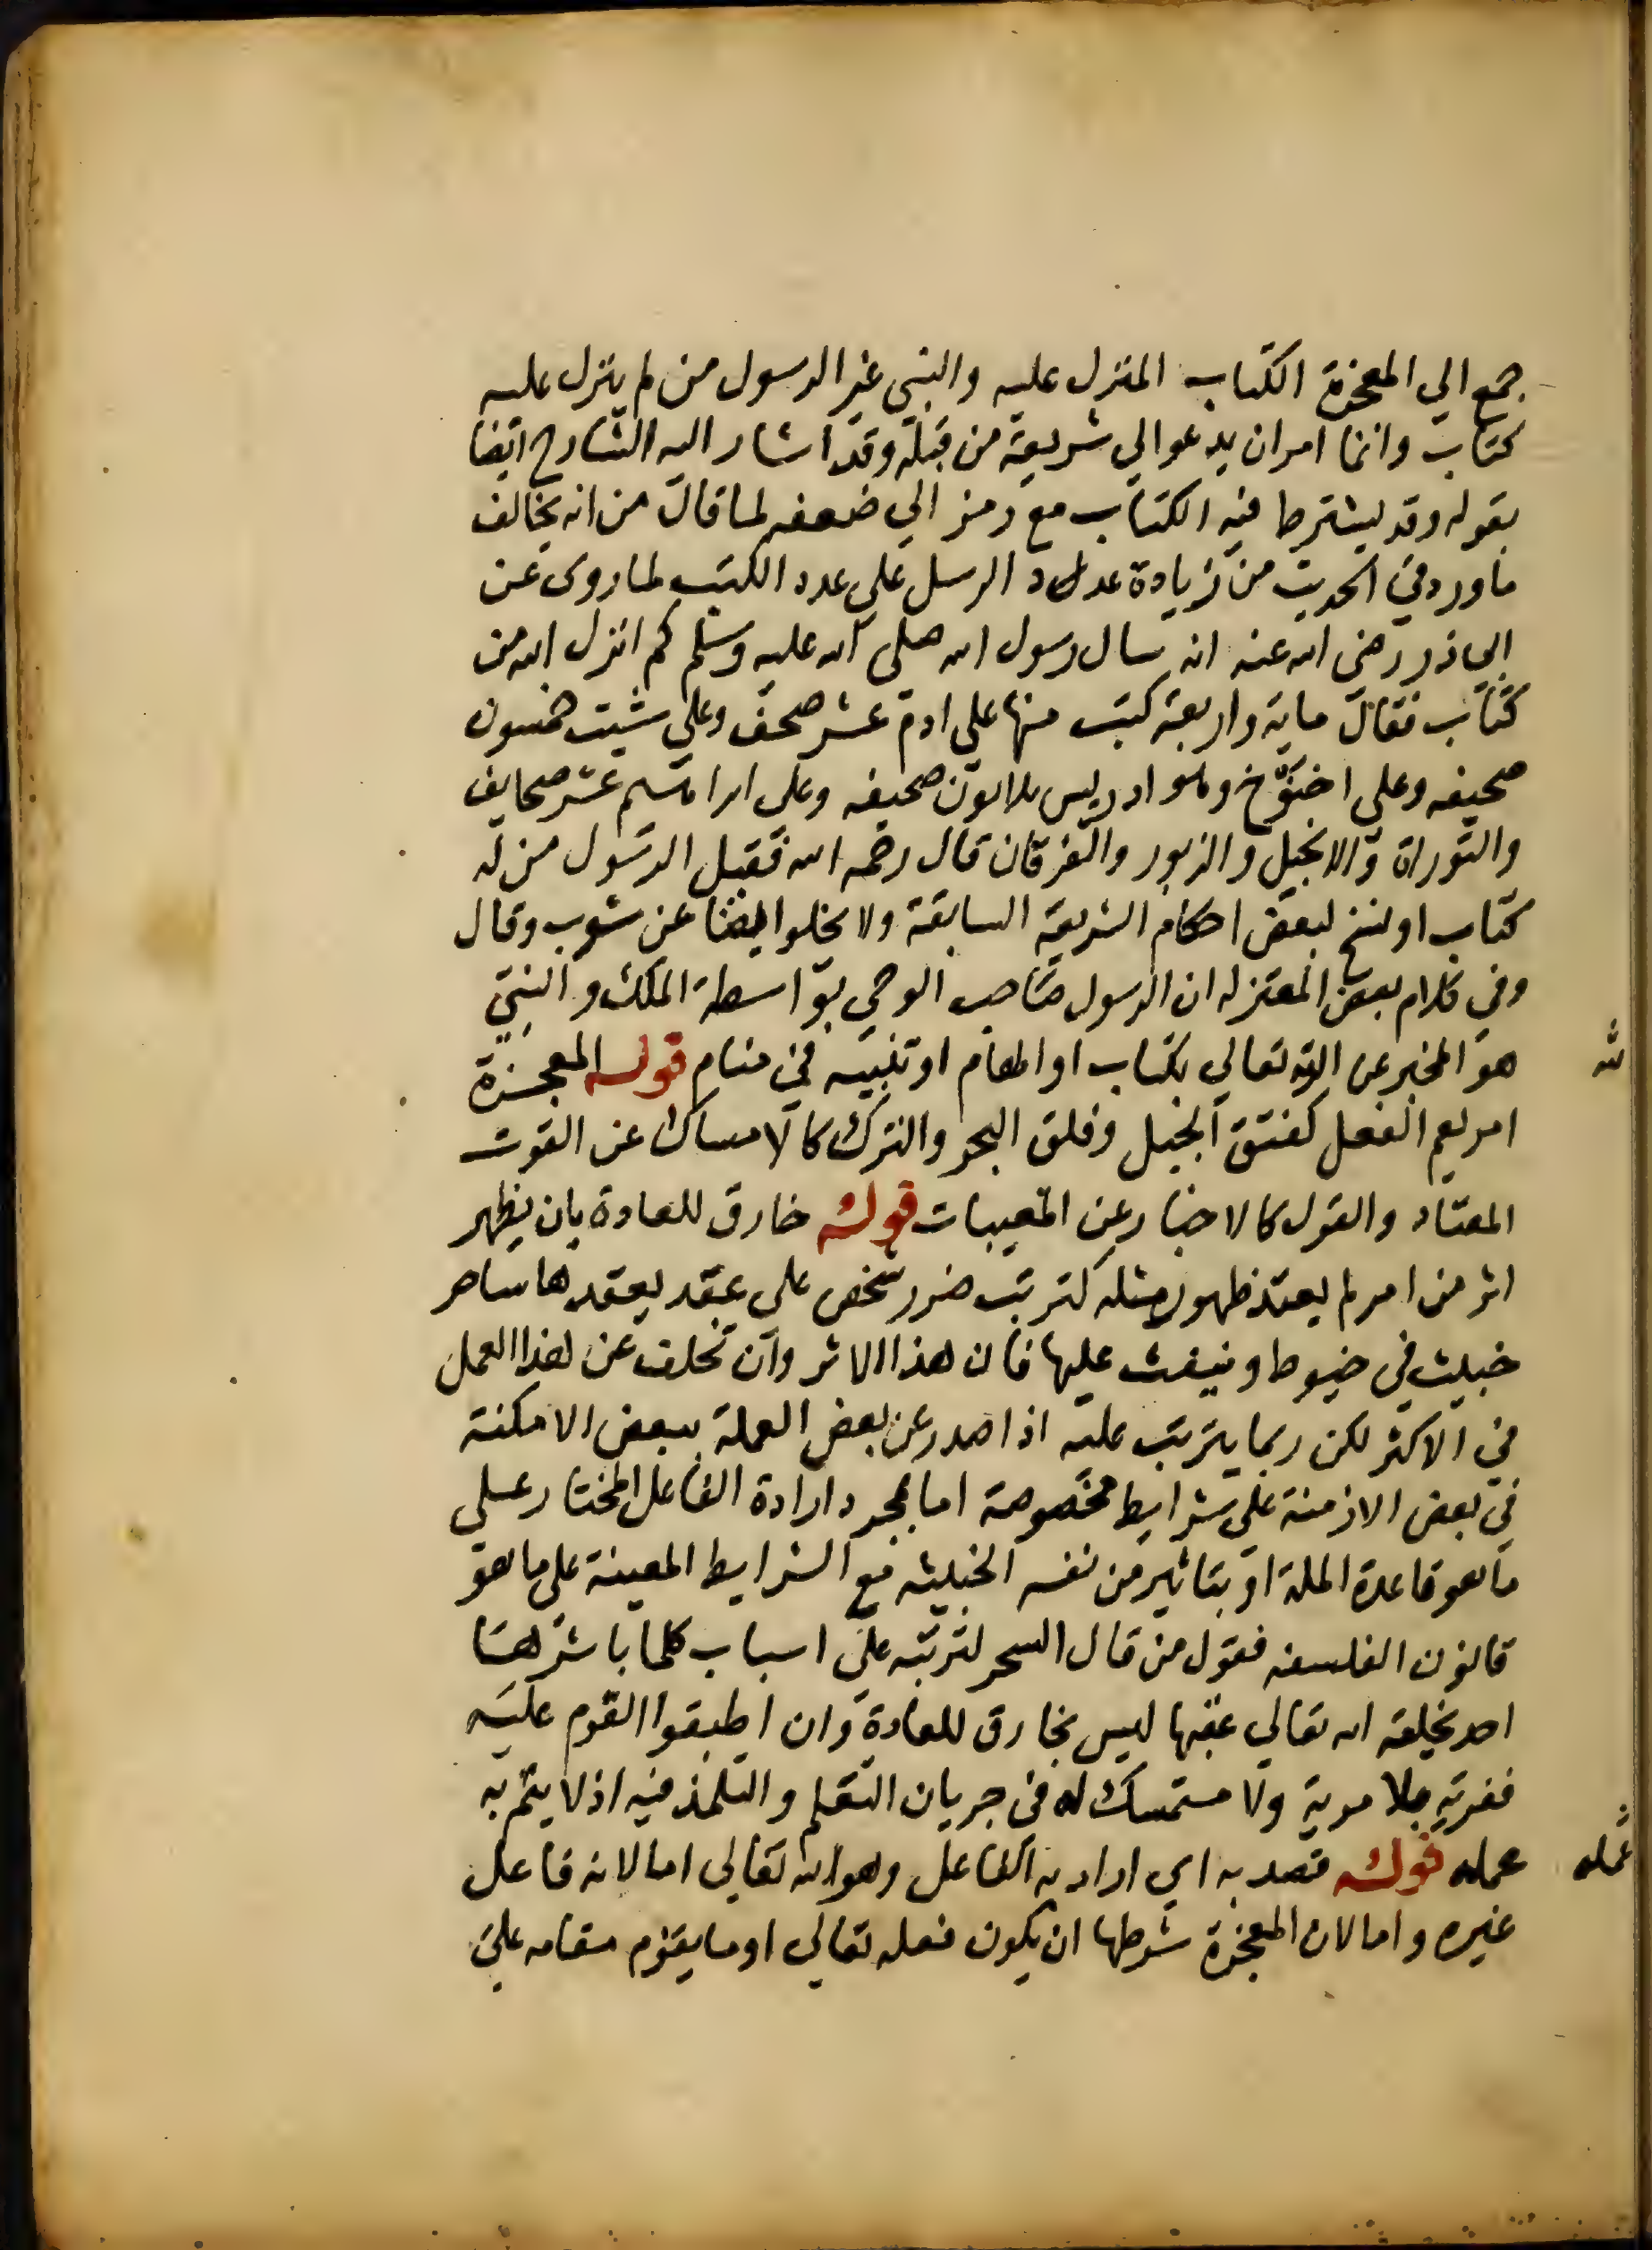 جمع الي المعجزة الكتاب المنزل عليه والنبي غير الرسول من لم ينزل عليه
كتاب وانما امر ان يدعو الي شريعة من قبله وقد اشار اليه الشارح ايضا
بقوله وقد يشترط فيه الكتاب مع رمز الي ضعفه لما قال من انه يخالف
ما ورد في الحديث من زيادة عدد الرسل علي عدد الكتب لما روى عن
ابي ذر رضى الله عنه انه سال رسول الله صلى الله عليه وسلم كم انزل الله من
كتاب فقال ماية واربعة كتب منها علي ادم عشر صحف وعلي شيث خمسون
صحيفه وعلي اخنوخ وهو ادريس ثلاثون صحيفه وعلى ابراهيم عشر صحايف
والتوراة والانجيل والزبور والفرقان قال رحمه الله فقيل الرسول من له
كتاب او نسخ لبعض احكام الشريعة السابقة ولا يخلوا ايضا عن شوب وقال
وفي كلام بعض المعتزله ان الرسول صاحب الوحي بواسطة الملك والنبي
هو المخبر عن الله تعالي بكتاب او الهام او تنبيه في منام قوله المعجزة
امر يعم الفعل كفتق الجبل وفلق البحر والترك كالامساك عن القوت
المعتاد والقول كالاخبار عن المغيبات قوله خارق للعادة بان يظهر
اثر من امر لم يعتد ظهور مثله كترتب ضرر شخص على عقد يعقدها ساحر
خبيث في خيوط وينفث عليها فان هذا الاثر وان تخلف عن هذا العمل
في الاكثر لكن ربما يترتب عليه اذا صدر عن بعض العملة ببعض الامكنة
في بعض الازمنة علي شرايط مخصوصة اما بمجرد ارادة الفاعل المختار علي
ما هو قاعدة الملة او بتاثير من نفسه الخبيثه مع الشرايط المعينة على ما هو
قانون الفلسفه فقول من قال السحر لترتبه علي اسباب كلما باشرها
احد يخلقه الله تعالي عقبها ليس بخارق للعادة وان اطبقوا القوم عليه
ففرية بلا مرية ولا مستمسك له في جريان التعلم والتلمذ فيه اذ لا يتم به
عمله قوله قصد به اي اراد به الفاعل وهو الله تعالي اما لانه فاعل
غيره واما لان المعجزة شرطها ان يكون فعله تعالي او ما يقوم مقامه علي
لله
عمله